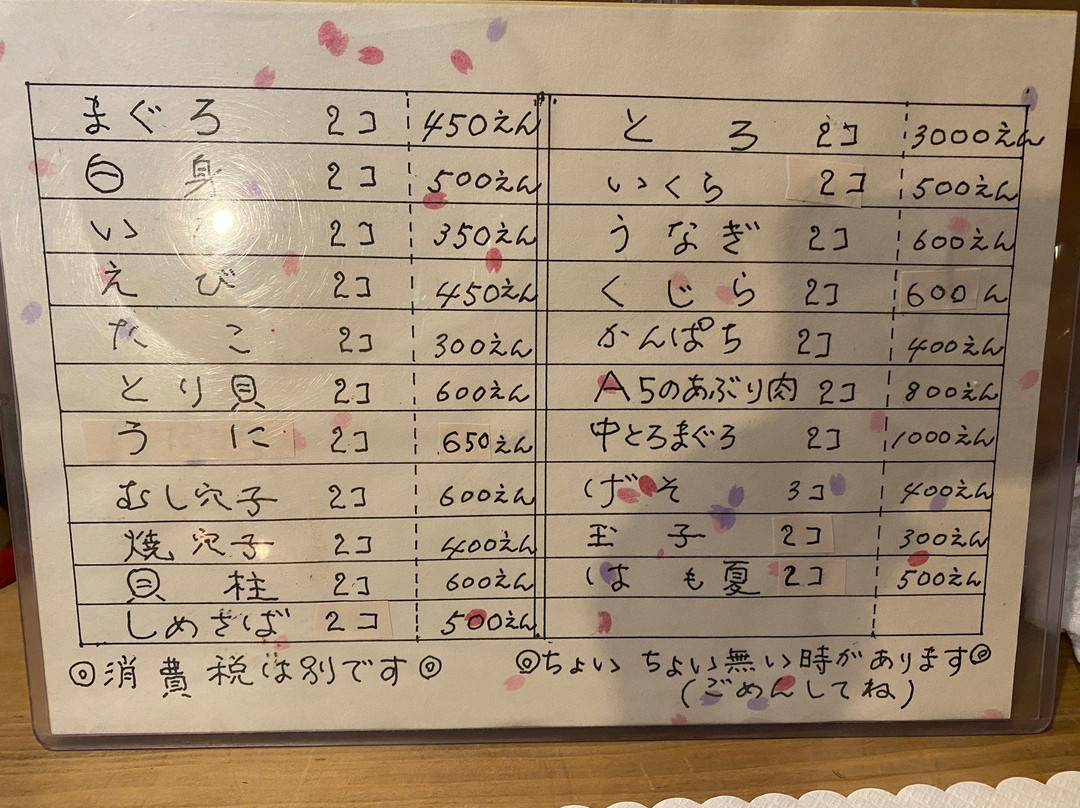 まぐろ 2コ 450えん
白身 2コ 500えん
い 2コ 350えん
えび 2コ 450えん
たこ 2コ 300えん
とり貝 2コ 600えん
うに 2コ 650えん
むし穴子 2コ 600えん
焼穴子 2コ 400えん
貝柱 2コ 600えん
しめさば 2コ 500えん
とろ 2コ 3000えん
いくら 2コ 500えん
うなぎ 2コ 600えん
くじら 2コ 600ん
かんぱち 2コ 400えん
A5のあぶり肉 2コ 800えん
中とろまぐろ 2コ 1000えん
げそ 3コ 400えん
玉子 2コ 300えん
はも夏 2コ 500えん
◎消費税は別です◎
◎ちょいちょい無い時があります◎
(ごめんしてね)